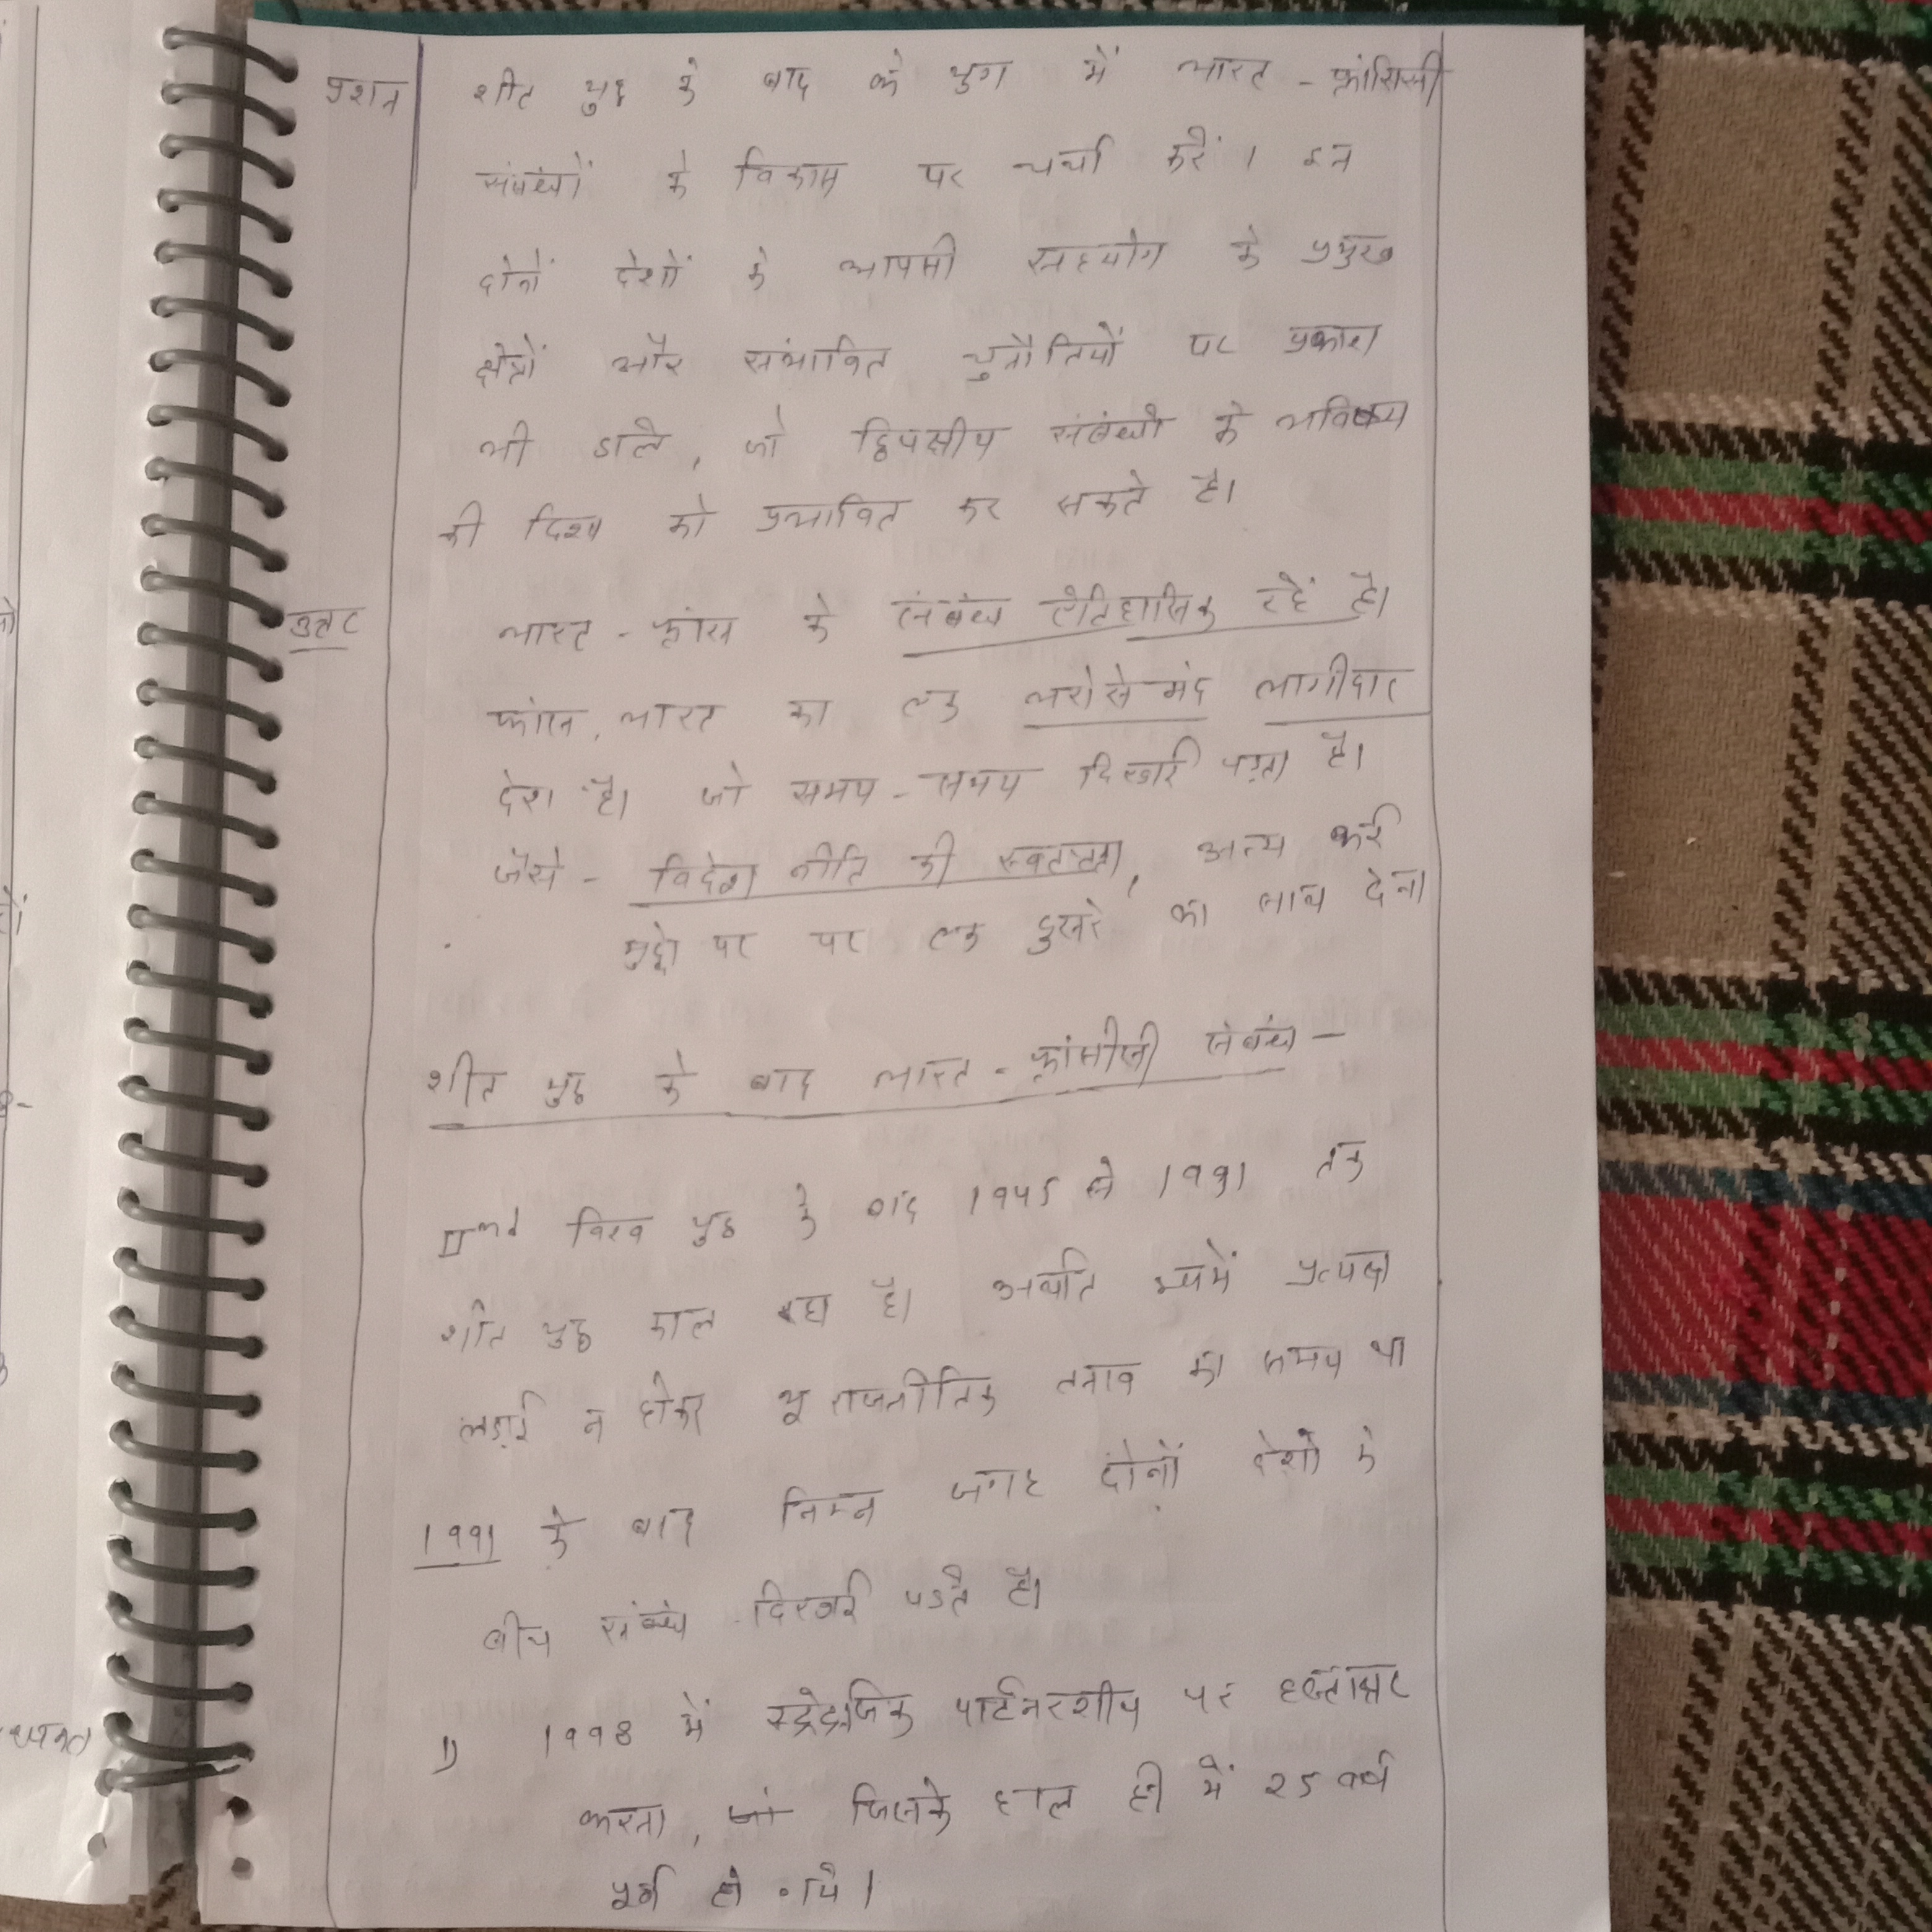 प्रशन शीत युद्ध के बाद के युग में भारत - फ्रांसिसी
संबंधों के विकास पर चर्चा करें। इन
दोनों देशों के आपसी सहयोग के प्रमुख
क्षेत्रों और संभावित चुनौतियों पर प्रकाश
भी डाले, जो द्विपक्षीय संबंधो के भविष्य
की दिशा को प्रभावित कर सकते है।
उत्तर भारत - फ्रांस के संबंध ऐतिहासिक रहें है।
फ्रांस, भारत का एक भरोसेमंद भागीदार
देश है। जो समय - समय दिखाई पड़ता है।
जैसे - विदेश नीति की स्वतंत्रता, अन्य कई
मुद्दो पर पर एक दुसरे का साथ देना
शीत युद्ध के बाद भारत - फ्रांसीसी संबंध -
IInd विश्व युद्ध के बाद 1945 से 1991 तक
शीत युद्ध काल रहा है। अर्थात इसमें प्रत्यक्ष
लड़ाई न होकर भू राजनीतिक तनाव का समय था
1991 के बाद निम्न जगह दोनों देशो के
बीच संबंध दिखाई पडते है।
1) 1998 में स्ट्रेट्रेजिक पार्टनरशीप पर हस्ताक्षर
करना, जो जिसके हाल ही में 25 वर्ष
पूर्ण हो गये।